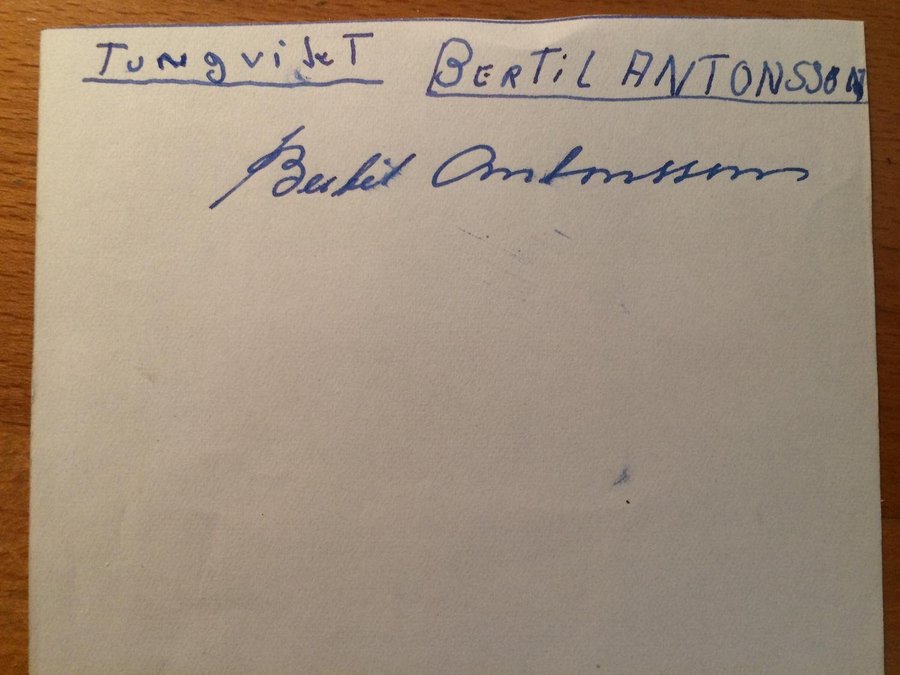 TUNgViKT BERTiL ANTONSSON
Bertil Antonsson